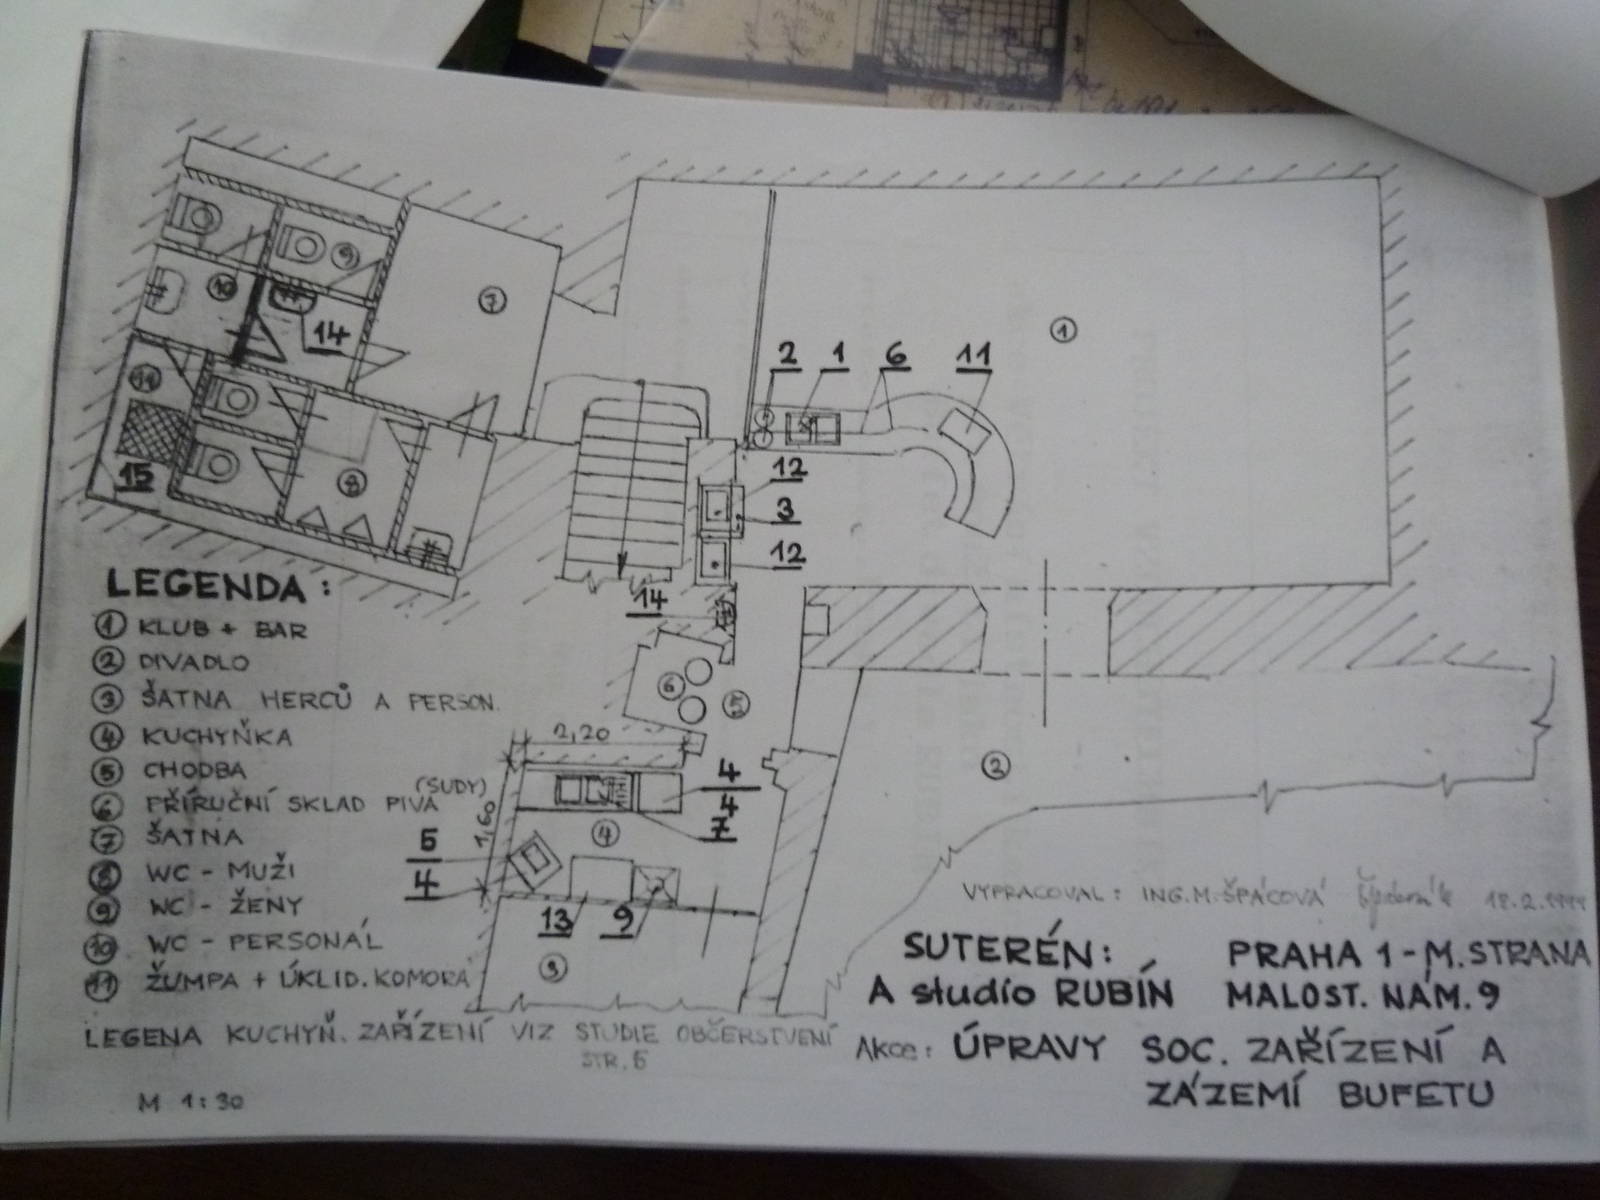 9
10
7
14
1
2 1 6 11
11
15
8
12
3
12
14
6
5
2,20
4
4
7
1,60
5
4
4
13 9
3
2
LEGENDA:
1 KLUB + BAR
2 DIVADLO
3 ŠATNA HERCŮ A PERSON.
4 KUCHYŇKA
5 CHODBA
(SUDY)
6 PŘÍRUČNÍ SKLAD PIVA
7 ŠATNA
8 WC - MUŽI
9 WC - ŽENY
10 WC - PERSONÁL
11 ŽUMPA + ÚKLID. KOMORA
LEGENA KUCHYŇ. ZAŘÍZENÍ VIZ STUDIE OBČERSTVENÍ
STR. 5
M 1:30
VYPRACOVAL: ING. M. ŠPÁCOVÁ 18.2.
SUTERÉN: PRAHA 1 - M. STRANA
A studio RUBÍN MALOST. NÁM. 9
Akce: ÚPRAVY SOC. ZAŘÍZENÍ A
ZÁZEMÍ BUFETU